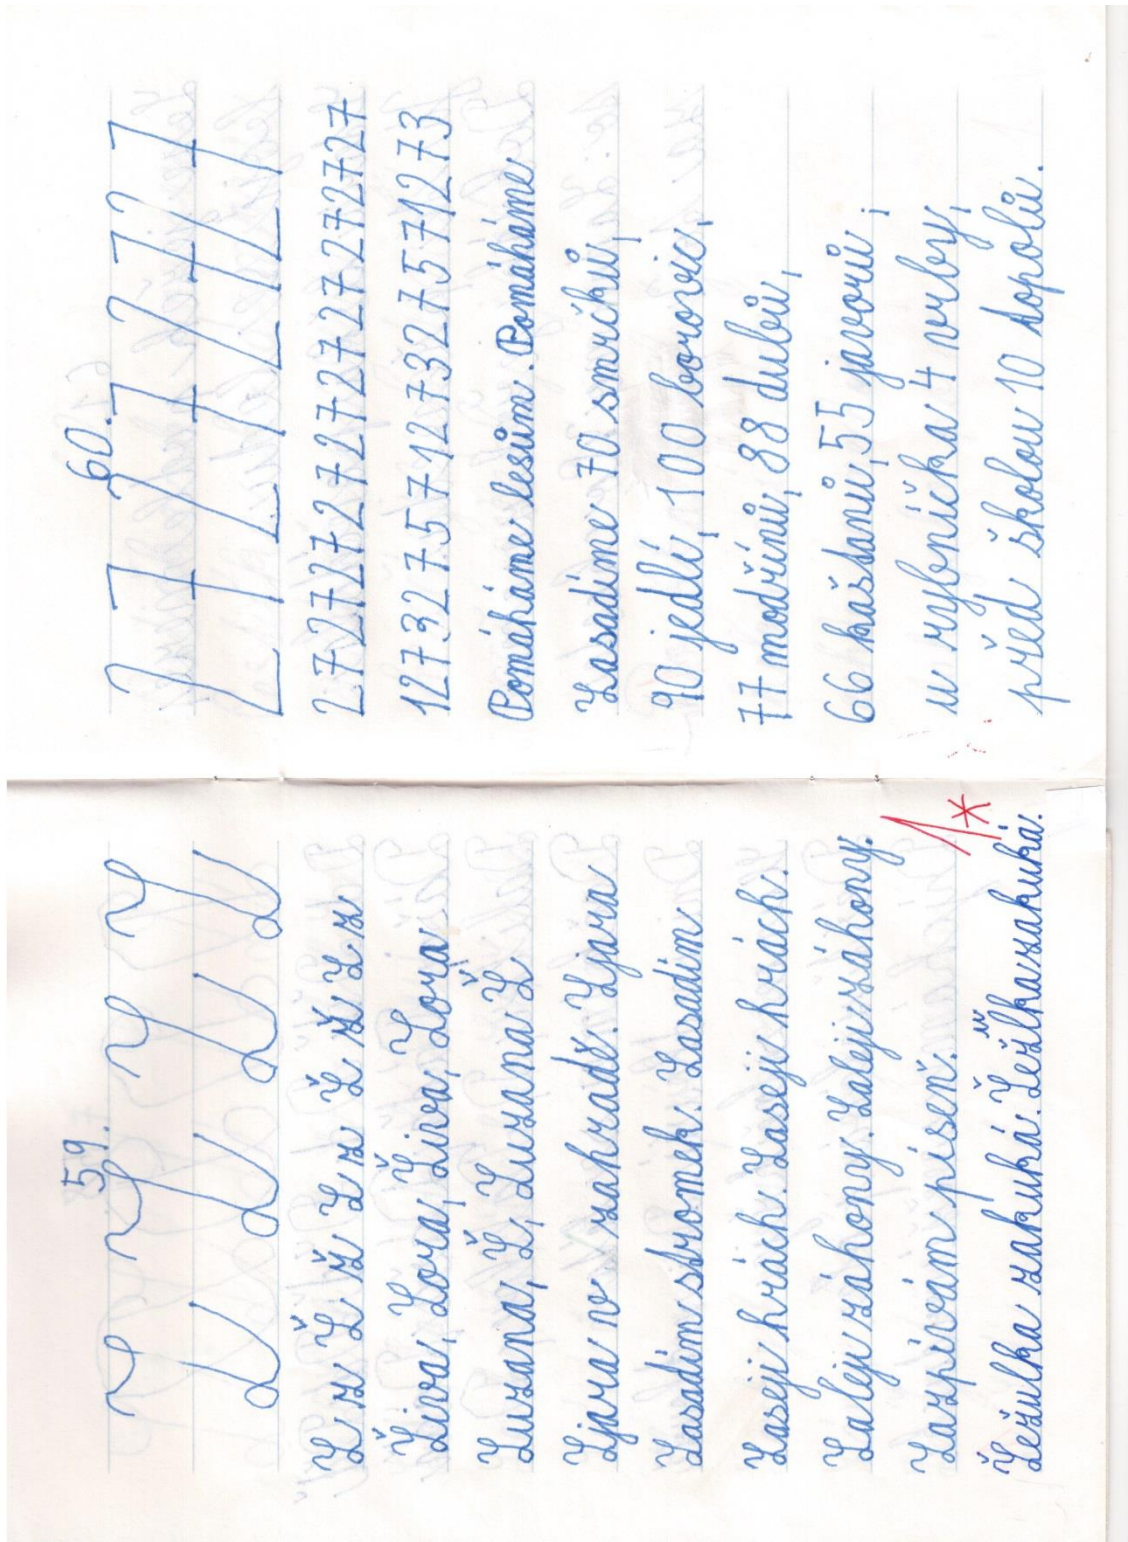 59.
Z z Ž Ž ž Z z Ž ž Z z
Živa, Zora, Živa, Zora
Zuzana, Ž, Zuzana Ž
Zjara v zahradě. Zjara
Zasadím stromek. Zasadím
Zaseji hrách. Zaseji hrách.
Zaleji záhony. Zaleji záhony.
Zazpívám píseň.
Žežulka zakuká. Žežulka zakuká.
1*
60.
2727272727272727
12732757127327571273
Pomáháme lesům. Pomáháme
Zasadíme 70 smrčků,
90 jedlí, 100 borovic,
77 modřínů, 88 dubů,
66 kaštanů, 55 javorů;
u rybníčka 4 vrby,
před školou 10 topolů.